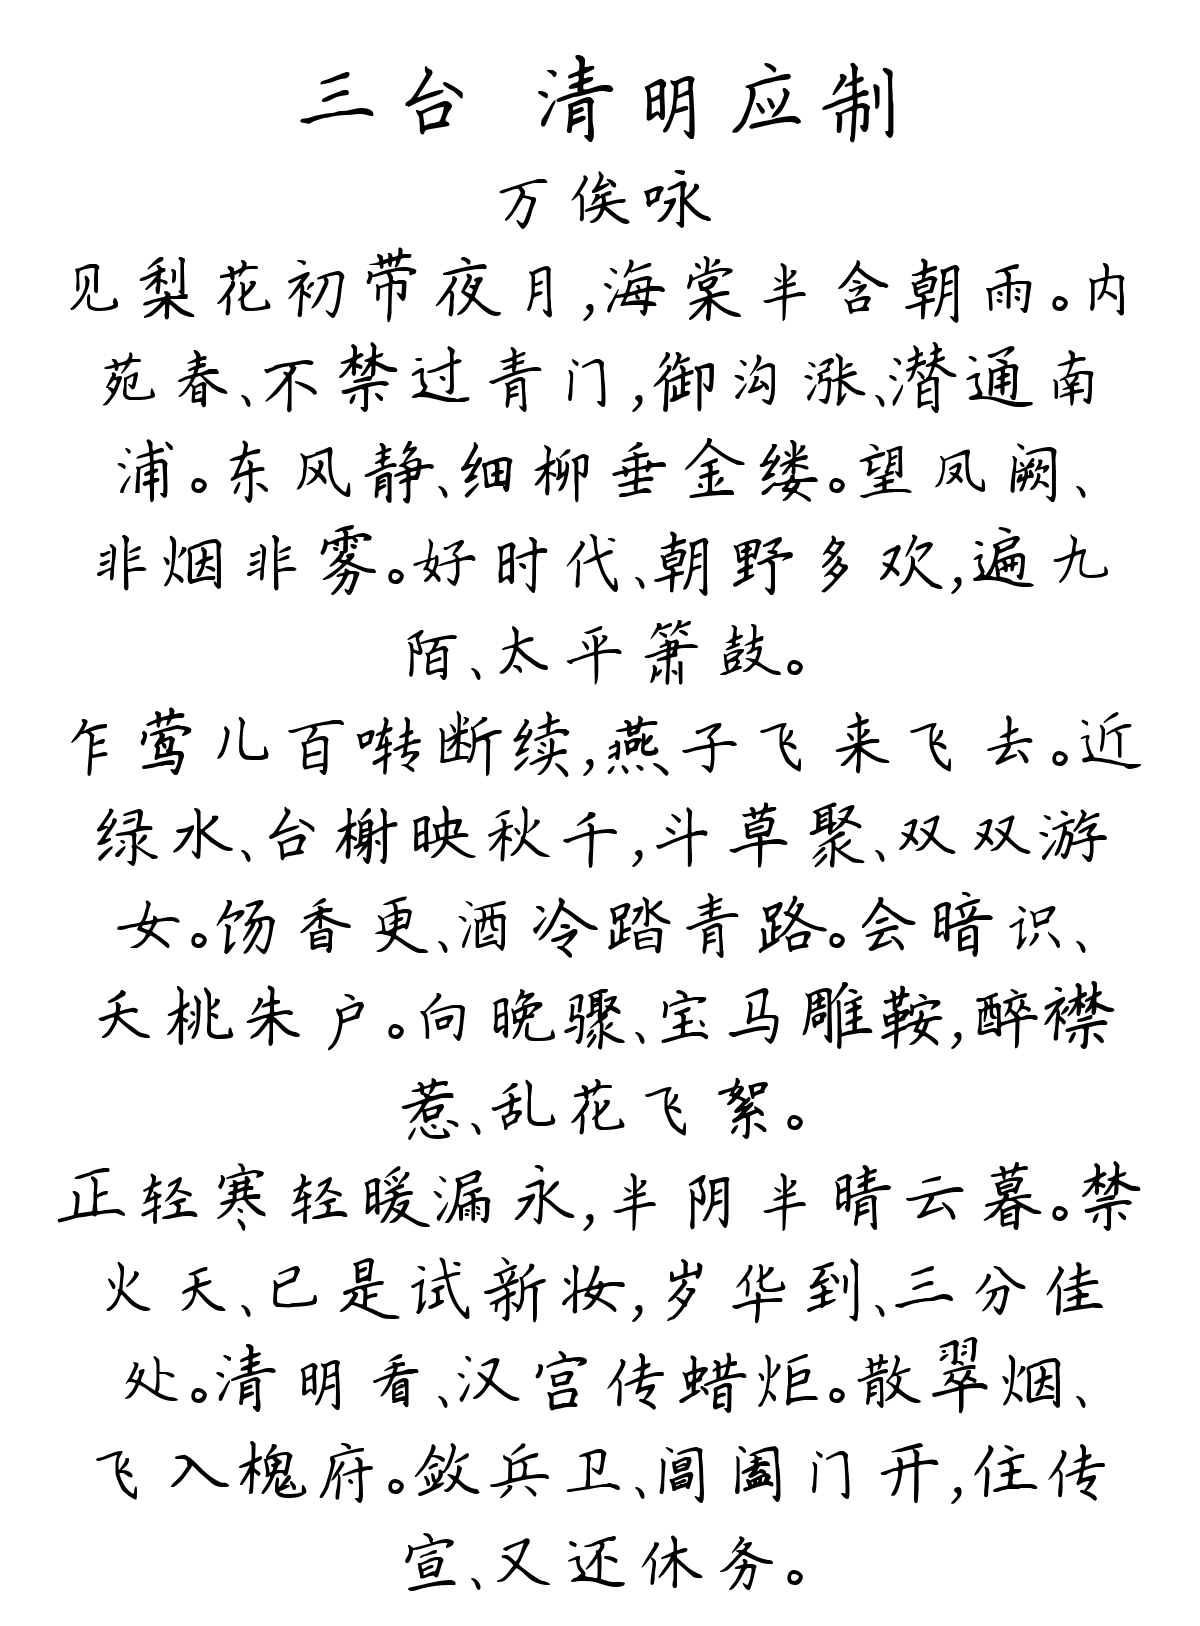 三台 清明应制
万俟咏
见梨花初带夜月,海棠半含朝雨。内
苑春、不禁过青门,御沟涨、潜通南
浦。东风静、细柳垂金缕。望凤阙、
非烟非雾。好时代、朝野多欢,遍九
陌、太平箫鼓。
乍莺儿百啭断续,燕子飞来飞去。近
绿水、台榭映秋千,斗草聚、双双游
女。饧香更、酒冷踏青路。会暗识、
夭桃朱户。向晚骤、宝马雕鞍,醉襟
惹、乱花飞絮。
正轻寒轻暖漏永,半阴半晴云暮。禁
火天、已是试新妆,岁华到、三分佳
处。清明看、汉宫传蜡炬。散翠烟、
飞入槐府。敛兵卫、阊阖门开,住传
宣、又还休务。